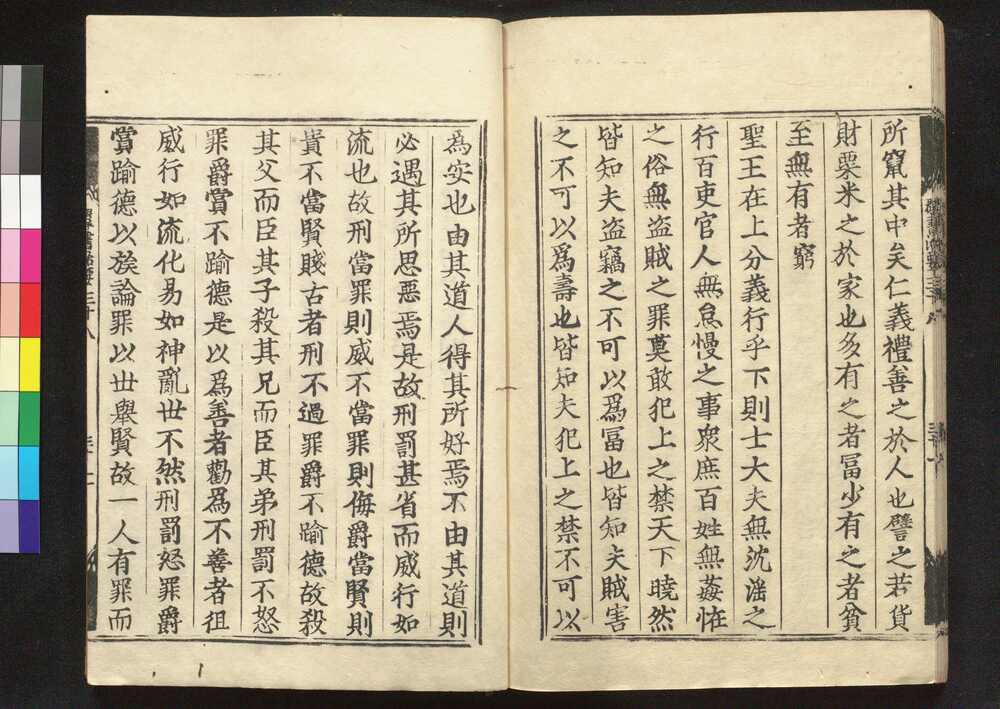 所竄其中矣仁義禮善之於人也譬之若貨
財粟米之於家也多有之者冨少有之者貧
至無有者窮
聖王在上分義行乎下則士大夫無沈滛之
行百吏官人無怠慢之事衆庶百姓無姦恠
之俗無盗賊之罪莫敢犯上之禁天下曉然
皆知夫盗竊之不可以為冨也皆知夫賊害
之不可以爲壽也皆知夫犯上之禁不可以
為安也由其道人得其所好焉不由其道則
必遇其所思惡焉是故刑罰甚省而威行如
流也故刑當罪則威不當罪則侮爵當賢則
貴不當賢賤古者刑不過罪爵不踰德故殺
其父而臣其子殺其兄而臣其弟刑罰不怒
罪爵賞不踰德是以爲善者勸為不善者徂
威行如流化易如神亂世不然刑罰怒罪爵
賞踰德以族論罪以世舉賢故一人有罪而
羣書治要三十八